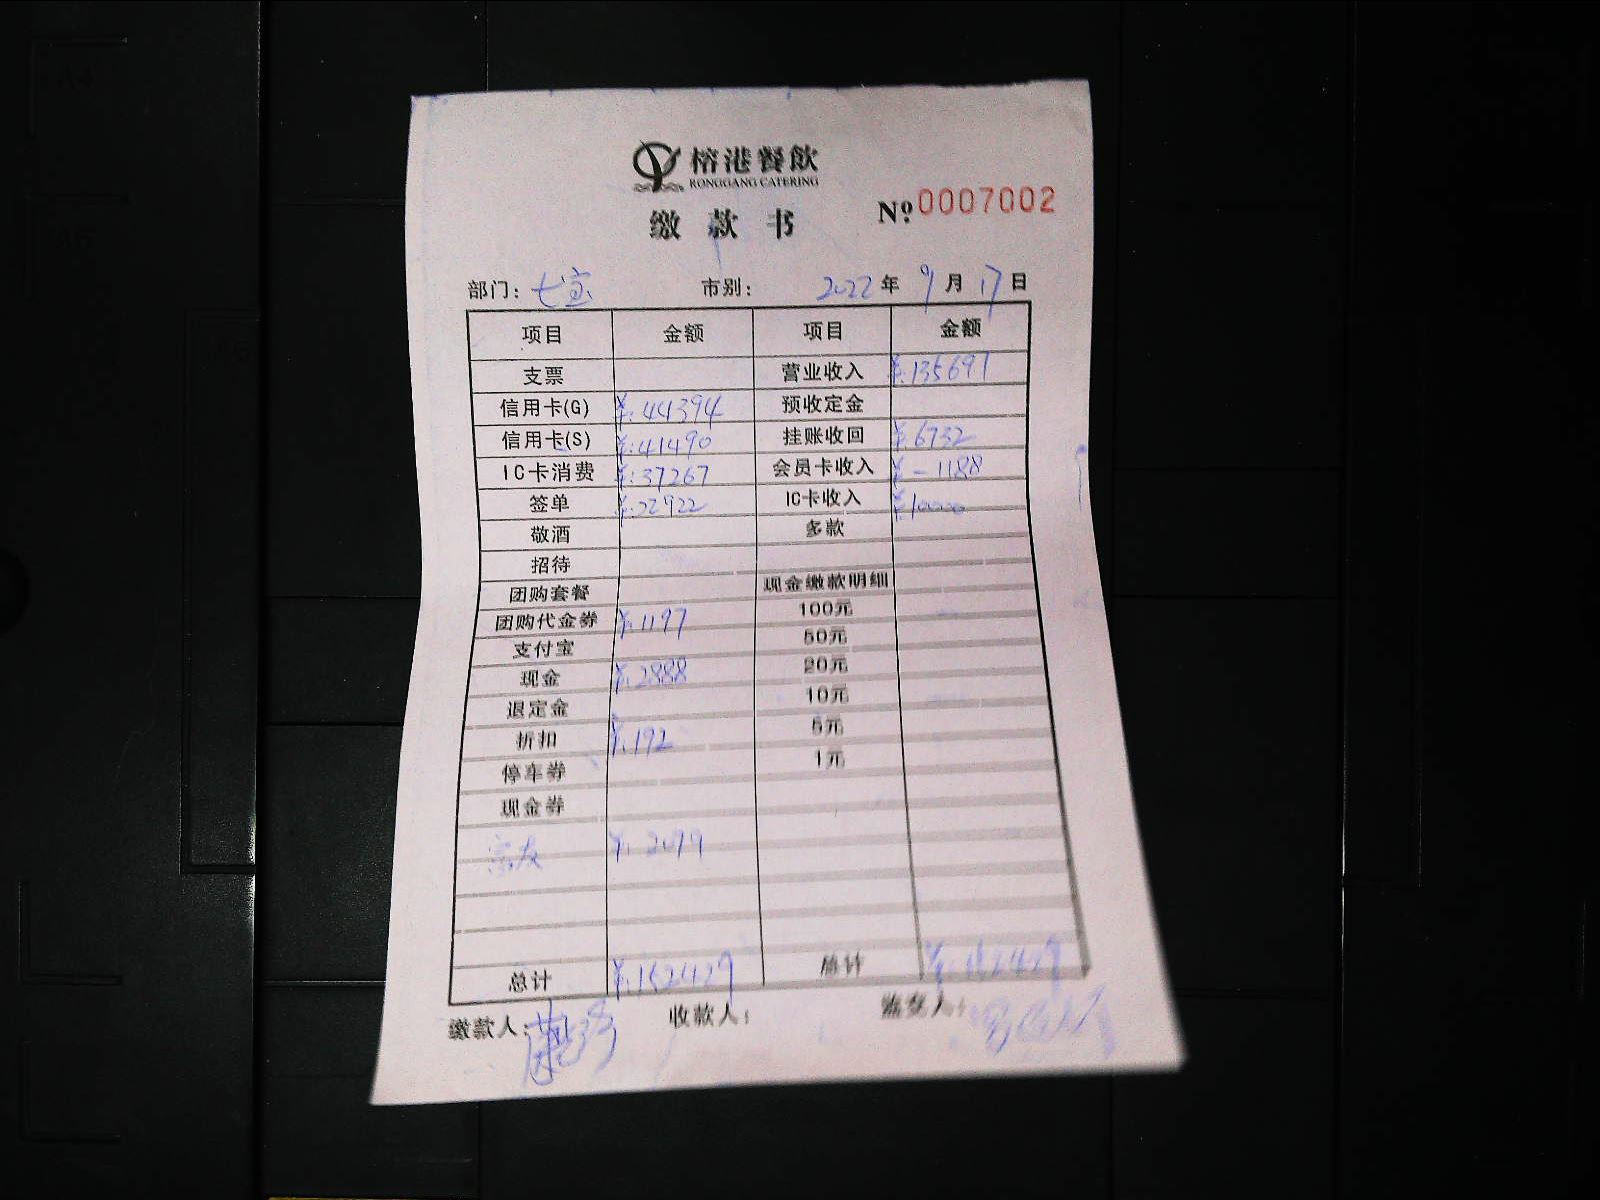 榕港餐飲
RONGGANG CATERING
缴款书 №0007002
部门: 七宝 市别: 2022年9月17日
项目 金额 项目 金额
支票 营业收入 ¥:135697
信用卡(G) ¥:44394 预收定金
信用卡(S) ¥:41490 挂账收回 ¥:6732
IC卡消费 ¥:37267 会员卡收入 ¥-1188
签单 ¥:22922 IC卡收入 ¥10000
敬酒 多款
招待
团购套餐 现金缴款明细
团购代金券 ¥:1197 100元
支付宝 50元
现金 ¥:2888 20元
退定金 10元
折扣 ¥:192 5元
停车券 1元
现金券
¥:2079
总计 ¥:152429 总计 ¥:152429
缴款人: 收款人: 监交人: